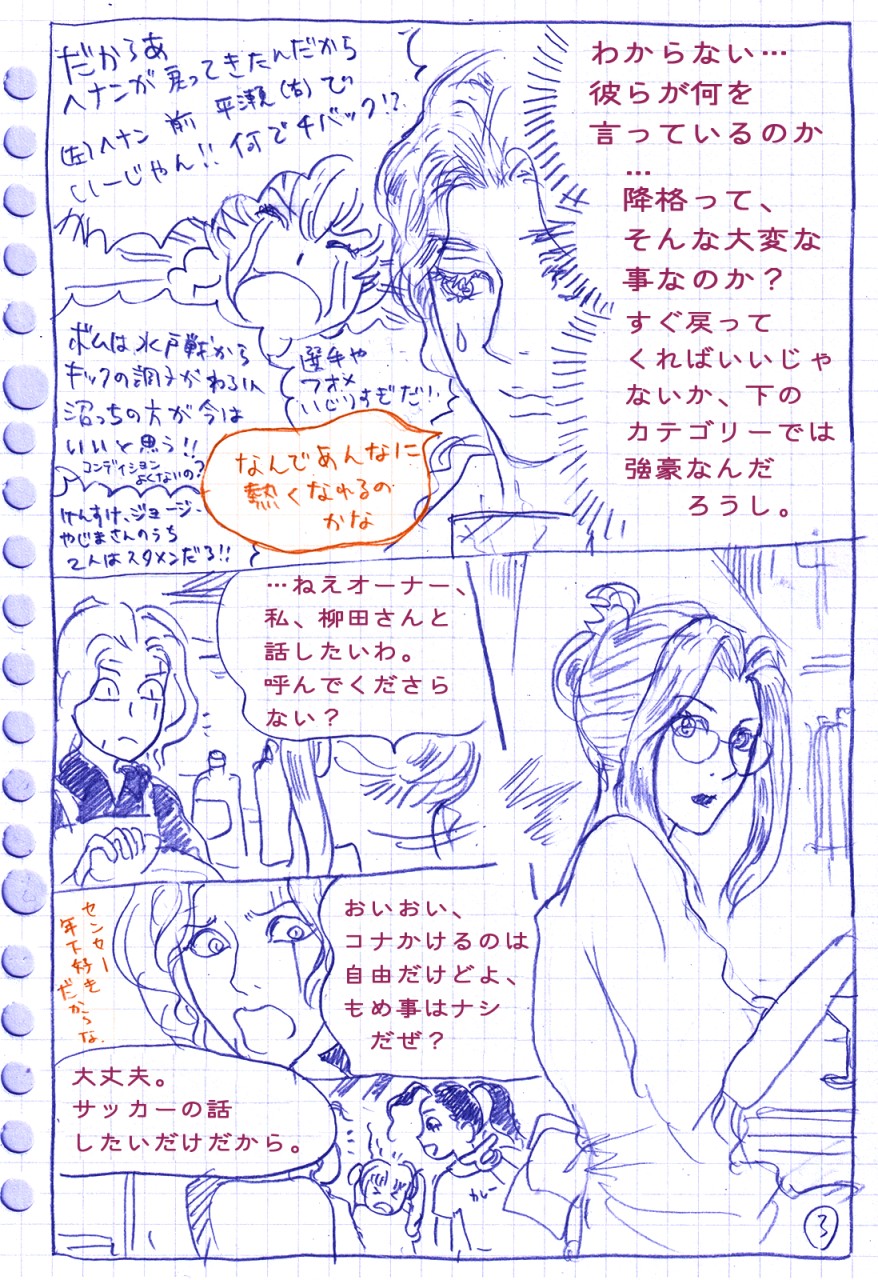 わからない…
彼らが何を
言っているのか
…
降格って、
そんな大変な
事なのか？
すぐ戻って
くればいいじゃ
ないか、下の
カテゴリーでは
強豪なんだ
ろうし。
だからあ
ヘナンが戻ってきたんだから
(左)ヘナン 前 平瀬(右)で
いーじゃん!! 何で4バック!?
選手や
フォメ
いじりすぎだ!!
ボムは水戸戦から
キックの調子がわるい
沼っちの方が今は
いいと思う!!
コンディション
よくないの?
けんすけ、ジョージ、
やじまさんのうち
2人はスタメンだろ!!
なんであんなに
熱くなれるの
かな
…ねえオーナー、
私、柳田さんと
話したいわ。
呼んでくださら
ない？
おいおい、
コナかけるのは
自由だけどよ、
もめ事はナシ
だぜ？
センセー
年下好き
だからな.
大丈夫。
サッカーの話
したいだけだから。
カレー
3